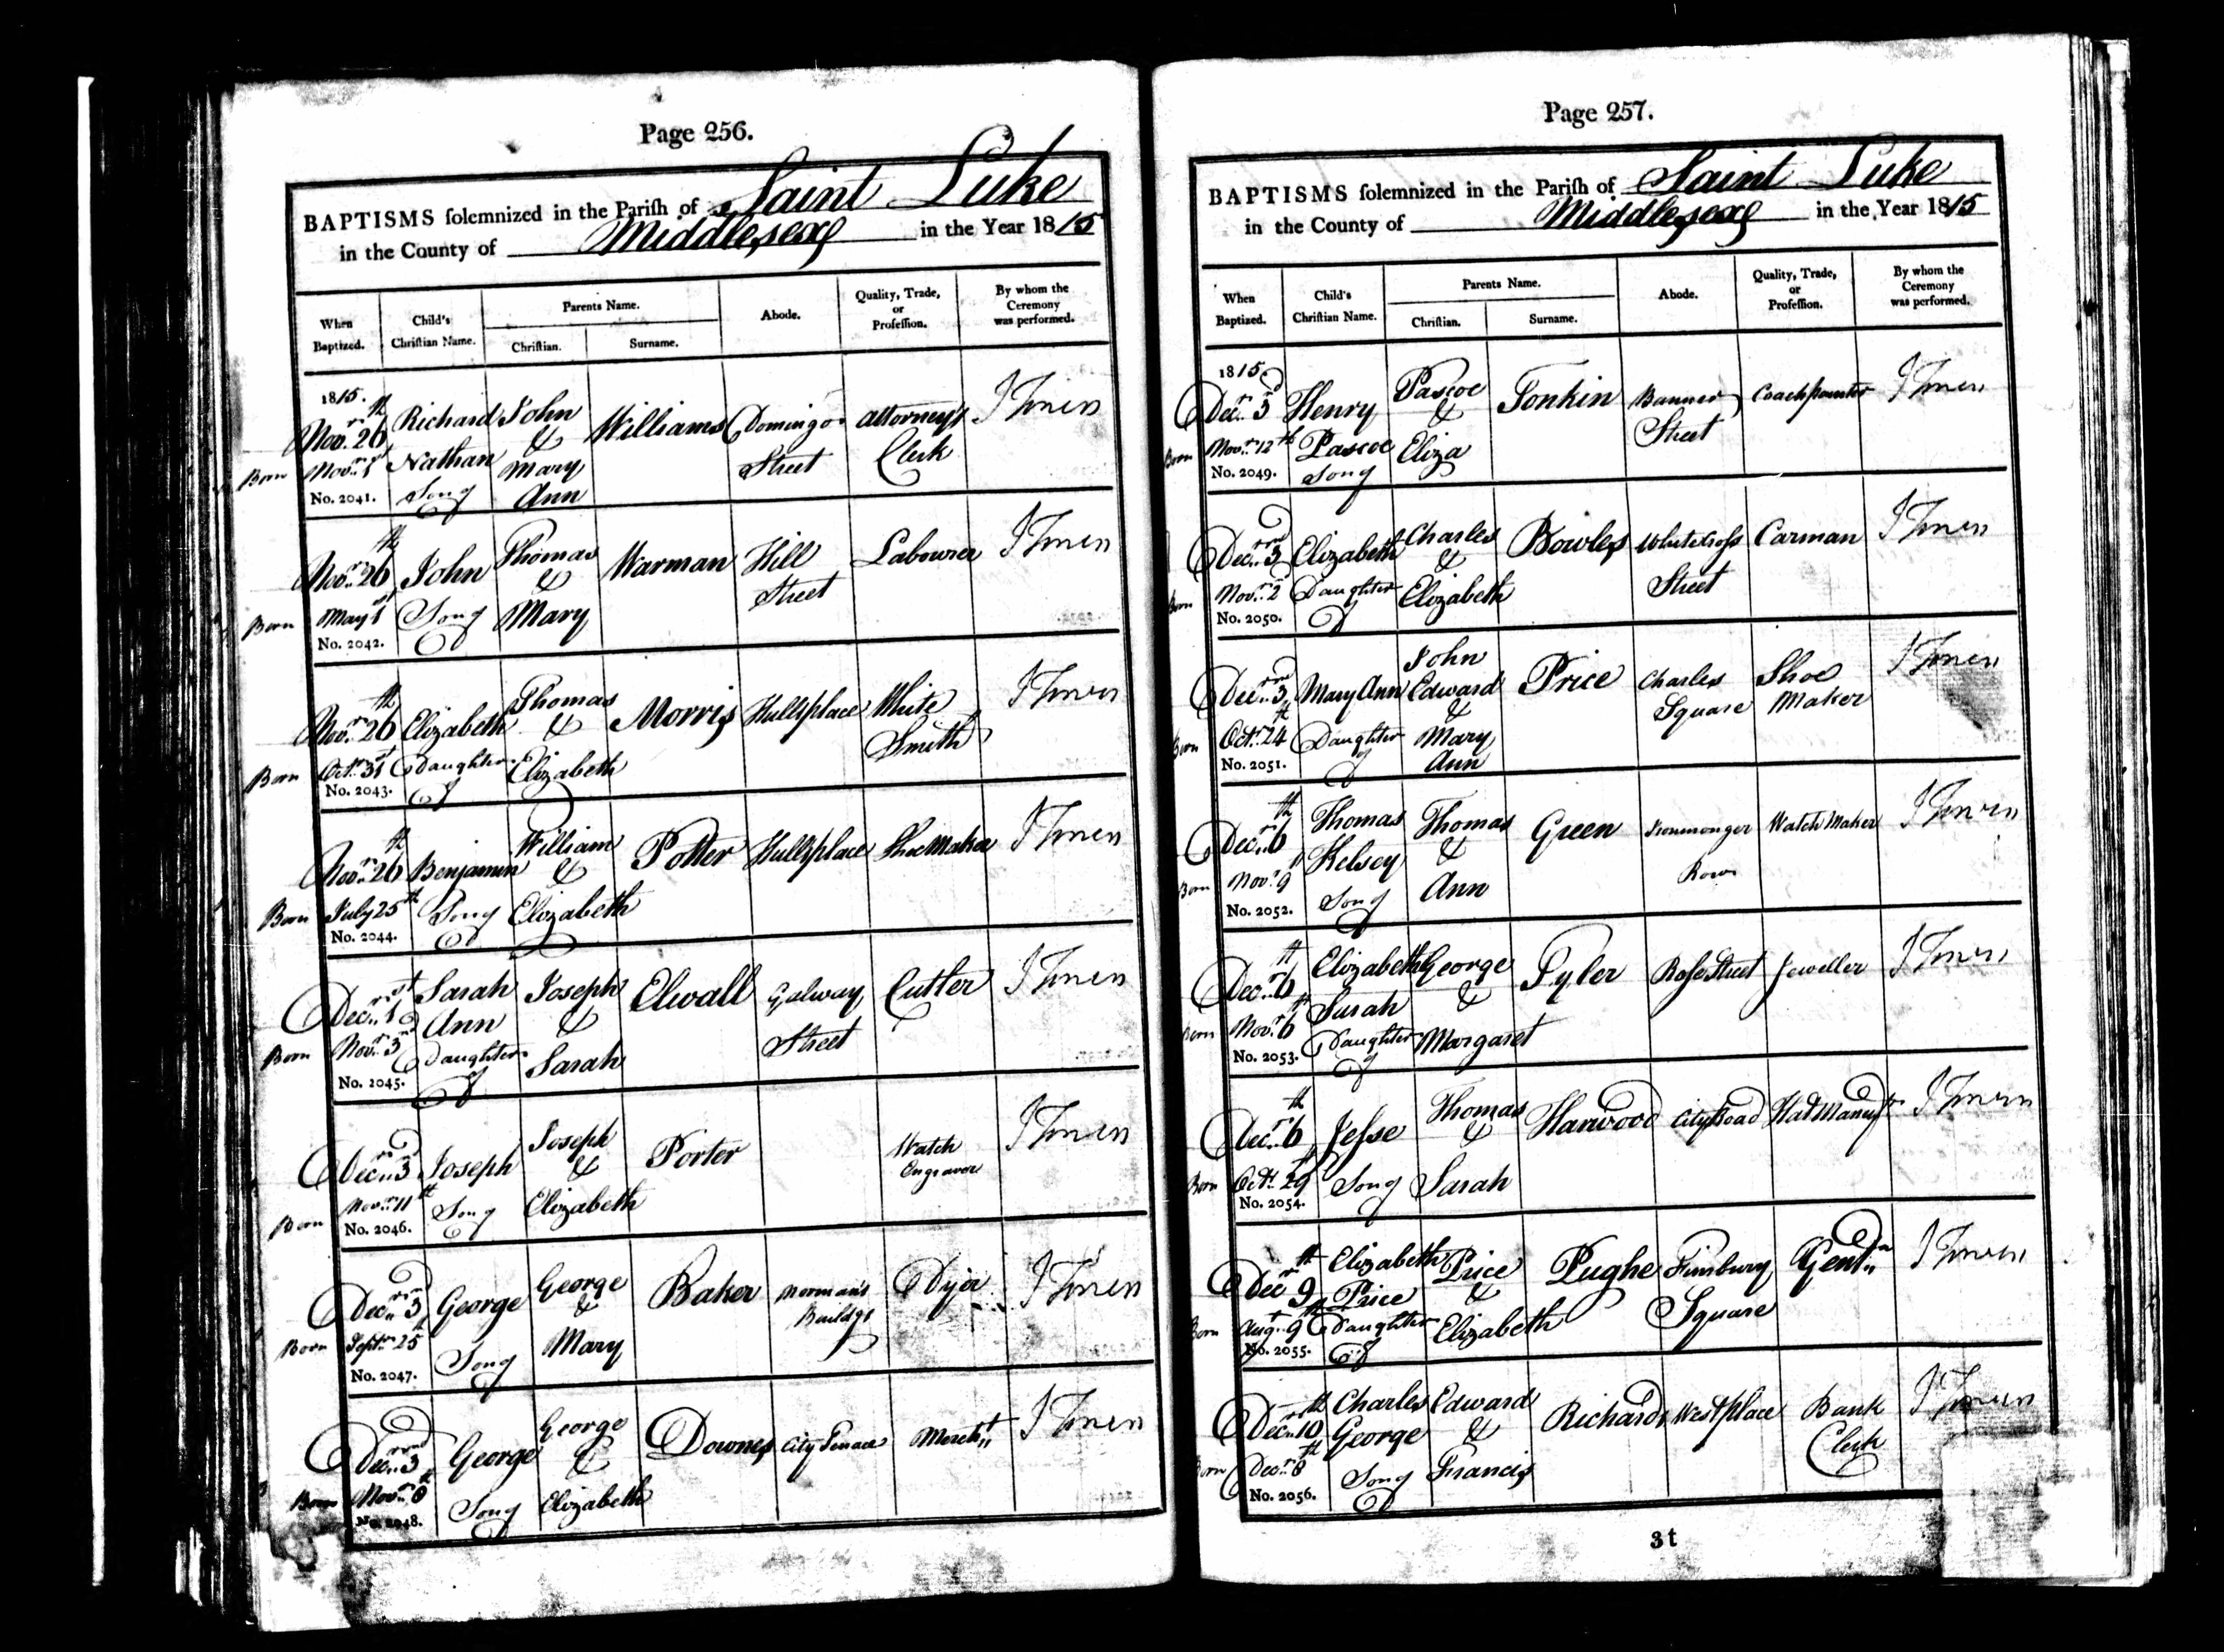 Page 256.
BAPTISMS solemnized in the Parish of Saint Luke
in the County of Middlesex in the Year 1815
When Baptized. Child's Christian Name. Parents Name. Christian. Surname. Abode. Quality, Trade, or Profession. By whom the Ceremony was performed.
1815. Novr. 26th Born Novr. 1st No. 2041. Richard Nathan Son of John & Mary Ann Williams Domingo Street Attorney's Clerk
Novr. 26th Born May 1st No. 2042. John Son of Thomas & Mary Warman Hill Street Labourer
Novr. 26th Born Octr. 31st No. 2043. Elizabeth Daughter of Thomas & Elizabeth Morris Hullsplace White Smith
Novr. 26th Born July 25th No. 2044. Benjamin Son of William & Elizabeth Potter Hullsplace Shoe Maker
Decr. 1st Born Novr. 3rd No. 2045. Sarah Ann Daughter of Joseph & Sarah Elwall Galway Street Cutler
Decr. 3rd Born Novr. 11th No. 2046. Joseph Son of Joseph & Elizabeth Porter Watch Engraver
Decr. 3rd Born Septr. 25th No. 2047. George Son of George & Mary Baker Norman's Buildgs Dyer
Decr. 3rd Born Novr. 8th No. 2048. George Son of George & Elizabeth Downes City Terrace Mercht.
Page 257.
BAPTISMS solemnized in the Parish of Saint Luke
in the County of Middlesex in the Year 1815
When Baptized. Child's Christian Name. Parents Name. Christian. Surname. Abode. Quality, Trade, or Profession. By whom the Ceremony was performed.
1815. Decr. 3d Born Novr. 12th No. 2049. Henry Pascoe Son of Pascoe & Eliza Tonkin Banner Street Coach painter
Decr. 3rd Born Novr. 2d No. 2050. Elizabeth Daughter of Charles & Elizabeth Bowles White Cross Street Carman
Decr. 3rd Born Octr. 24th No. 2051. Mary Ann Daughter of John Edward & Mary Ann Price Charles Square Shoe Maker
Decr. 6th Born Novr. 9th No. 2052. Thomas Kelsey Son of Thomas & Ann Green Ironmonger Row Watch Maker
Decr. 6th Born Novr. 6th No. 2053. Elizabeth Sarah Daughter of George & Margaret Tyler Rose Street Jeweller
Decr. 6th Born Octr. 29th No. 2054. Jesse Son of Thomas & Sarah Harwood City Road Hat Manufr
Decr. 9th Born Augt. 9th No. 2055. Elizabeth Price Daughter of Price & Elizabeth Pughe Finsbury Square Gentn.
Decr. 10th Born Decr. 8th No. 2056. Charles George Son of Edward & Francis Richards Westplace Bank Clerk
3 t